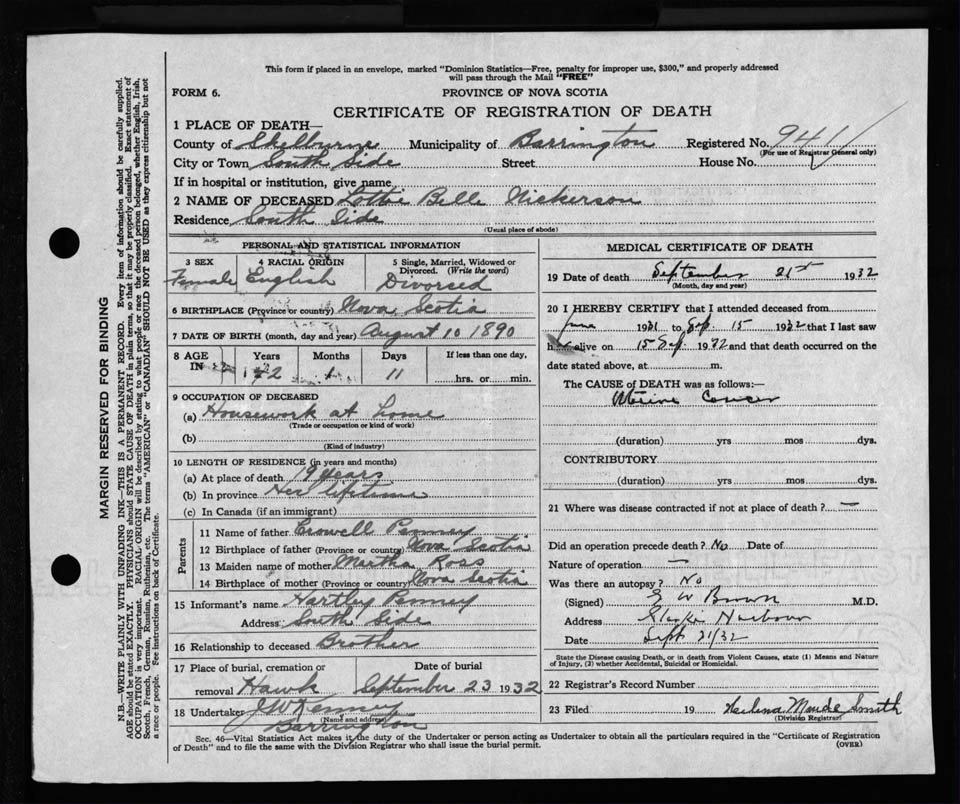 This form if placed in an envelope, marked "Dominion Statistics—Free, penalty for improper use, $300," and properly addressed
will pass through the Mail "FREE"
FORM 6.
PROVINCE OF NOVA SCOTIA
CERTIFICATE OF REGISTRATION OF DEATH
1 PLACE OF DEATH—
County of Shelburne Municipality of Barrington Registered No. 941
(For use of Registrar General only)
City or Town South Side Street House No.
If in hospital or institution, give name
2 NAME OF DECEASED Lottie Belle Nickerson
Residence South Side
(Usual place of abode)
PERSONAL AND STATISTICAL INFORMATION
3 SEX
Female
4 RACIAL ORIGIN
English
5 Single, Married, Widowed or
Divorced. (Write the word)
Divorced
6 BIRTHPLACE (Province or country) Nova Scotia
7 DATE OF BIRTH (month, day and year) August 10 1890
8 AGE IN
Years Months Days
42 1 11
If less than one day,
hrs. or min.
9 OCCUPATION OF DECEASED
(a) Housework at home
(Trade or occupation or kind of work)
(b)
(Kind of industry)
10 LENGTH OF RESIDENCE (in years and months)
(a) At place of death 19 years
(b) In province Her lifetime
(c) In Canada (if an immigrant)
Parents
11 Name of father Crowell Penney
12 Birthplace of father (Province or country) Nova Scotia
13 Maiden name of mother Ross
14 Birthplace of mother (Province or country) Nova Scotia
15 Informant's name Hartley Penney
Address South Side
16 Relationship to deceased Brother
17 Place of burial, cremation or
removal Hawk
Date of burial
September 23 1932
18 Undertaker J W Kenney
(Name and address)
Barrington
MEDICAL CERTIFICATE OF DEATH
19 Date of death September 21st 1932
(Month, day and year)
20 I HEREBY CERTIFY that I attended deceased from
June 1931 to Sep. 15 1932 that I last saw
h alive on 15 Sep. 1932 and that death occurred on the
date stated above, at m.
The CAUSE of DEATH was as follows:—
Uterine Cancer
(duration) yrs mos dys.
CONTRIBUTORY
(duration) yrs mos dys.
21 Where was disease contracted if not at place of death? —
Did an operation precede death? No Date of
Nature of operation —
Was there an autopsy? No
(Signed) W Brown M.D.
Address Harbour
Date Sept 21/32
State the Disease causing Death, or in death from Violent Causes, state (1) Means and Nature
of Injury, (2) whether Accidental, Suicidal or Homicidal.
22 Registrar's Record Number
23 Filed 19 Maude Smith
(Division Registrar)
Sec. 46—Vital Statistics Act makes it the duty of the Undertaker or person acting as Undertaker to obtain all the particulars required in the "Certificate of Registration
of Death" and to file the same with the Division Registrar who shall issue the burial permit.
(OVER)
MARGIN RESERVED FOR BINDING
N.B.—WRITE PLAINLY WITH UNFADING INK—THIS IS A PERMANENT RECORD. Every item of information should be carefully supplied.
AGE should be stated EXACTLY. PHYSICIANS should STATE CAUSE OF DEATH in plain terms, so that it may be properly classified. Exact statement of
OCCUPATION is very important. RACIAL ORIGIN will be described by stating to what people or race the deceased person belonged, whether English, Irish,
Scotch, French, German, Russian, Ruthenian, etc. The terms "AMERICAN" or "CANADIAN" SHOULD NOT BE USED as they express citizenship but not
a race or people. See instructions on back of Certificate.